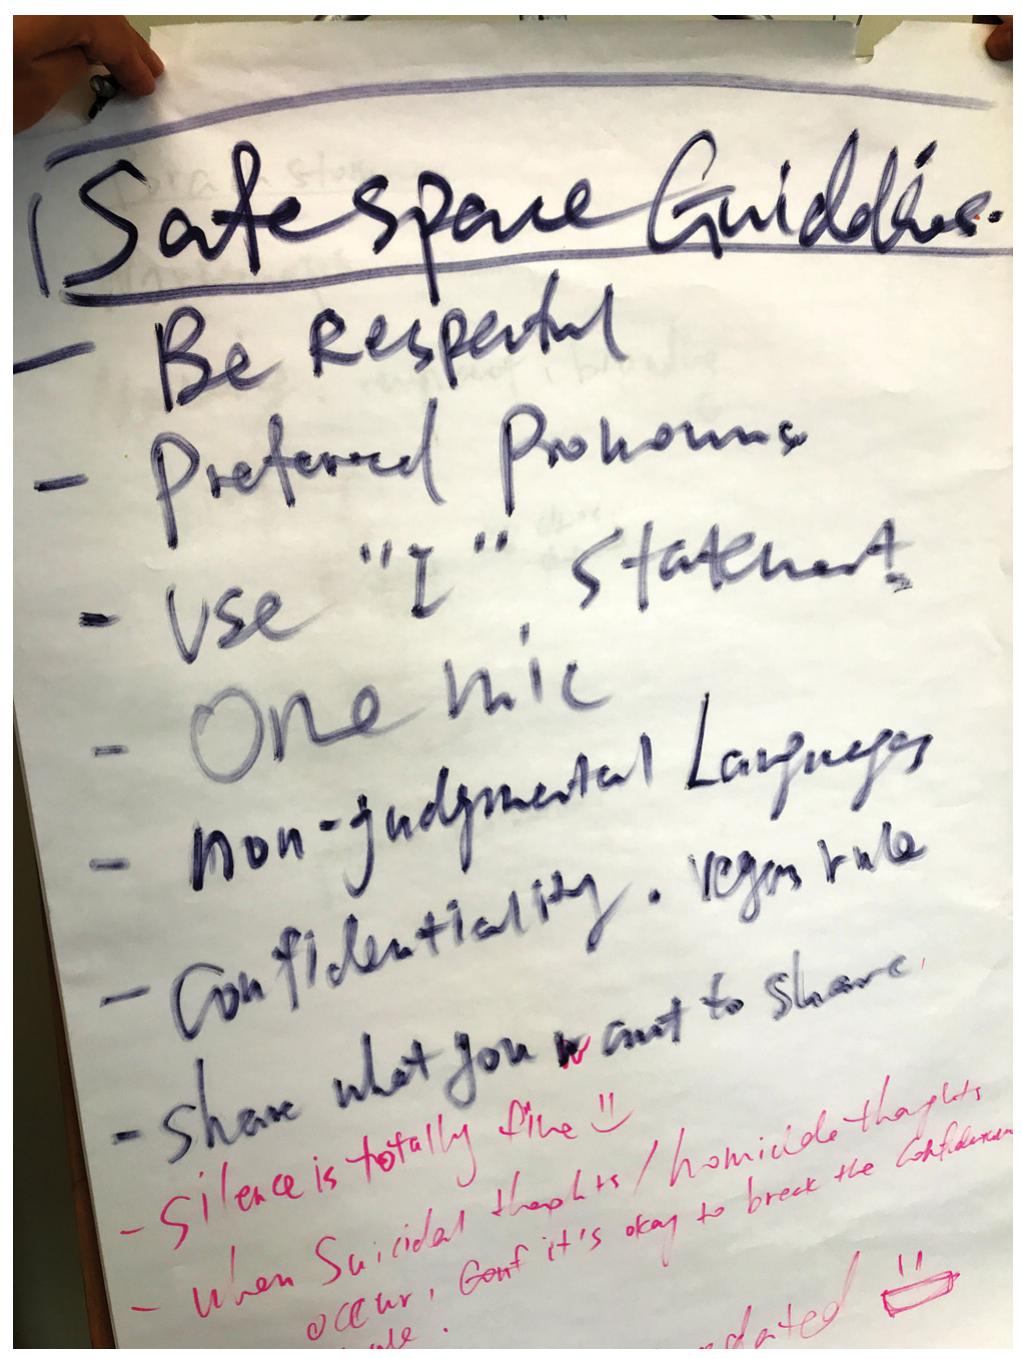 Safe space Guidelines.
- Be Respectful
- Preferred Pronouns
- Use "I" statements
- One mic
- non-judgmental Languages
- Confidentiality. Vegas rule
- Share what you want to share.
- Silence is totally fine
- when Suicidal thoughts / homicide thoughts
occur, it's okay to break the